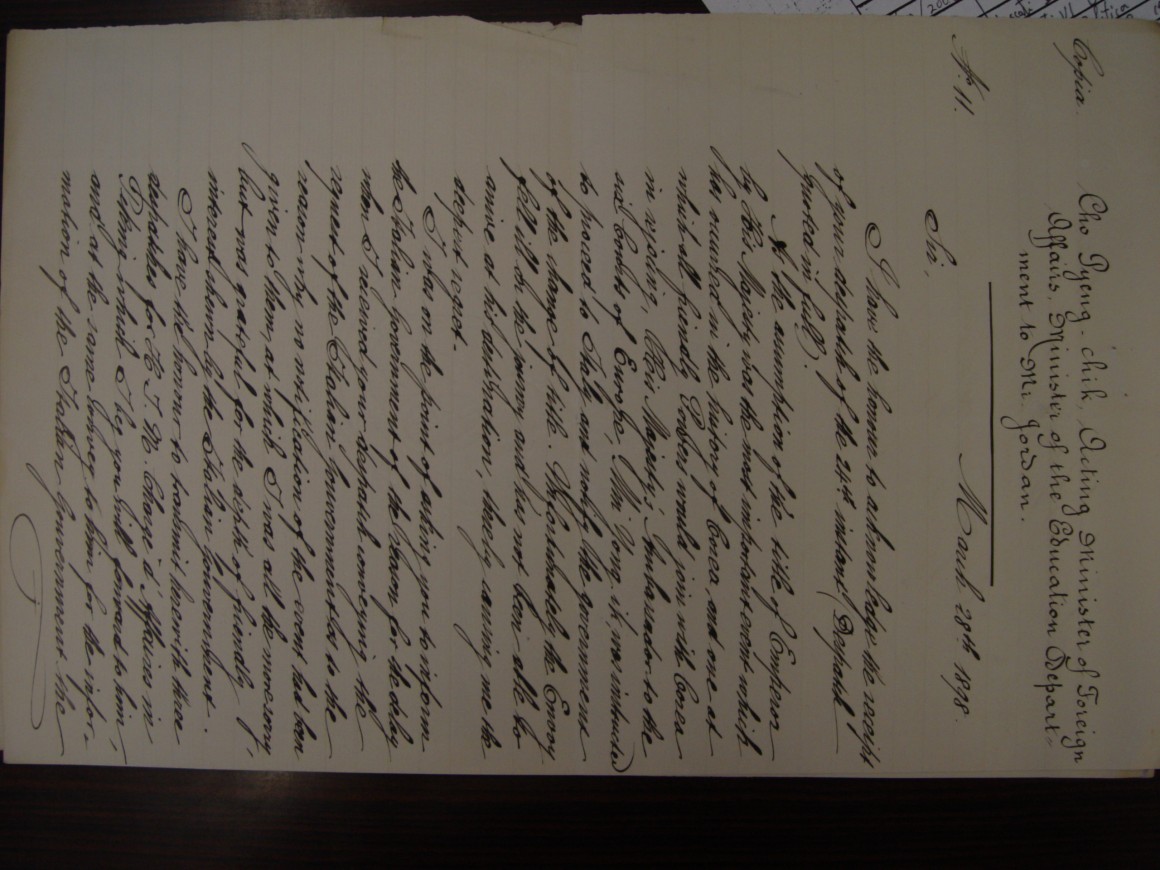 Copia.
Cho Pyeng-chik, Acting Minister of Foreign
Affairs, Minister of the Education Depart-
ment to Mr. Jordan.
No. 11.
March 28th 1898.
Sir,
I have the honour to acknowledge the receipt
of your despatch of the 24th instant (Despatch
quoted in full).
At the assumption of the title of Emperor
by His Majesty was the most important event which
has occurred in the history of Corea, and one at
which all friendly Powers would join with Corea
in rejoicing, His Majesty's Ambassador to the
six Courts of Europe, Min Yong ik was instructed
to proceed to Italy and notify the government
of the change of title. Unfortunately the Envoy
fell ill on the journey and has not been able to
arrive at his destination, thereby causing me the
deepest regret.
I was on the point of asking you to inform
the Italian Government of the reason for the delay
when I received your despatch conveying the
request of the Italian Government as to the
reason why no notification of the event had been
given to them, at which I was all the more sorry
but was grateful for the depth of friendly
interest shown by the Italian Government.
I have the honour to transmit herewith three
despatches for H. I. M. Chargé d'Affaires in
Peking which I beg you will forward to him,
and at the same time convey to him for the infor-
mation of the Italian Government the